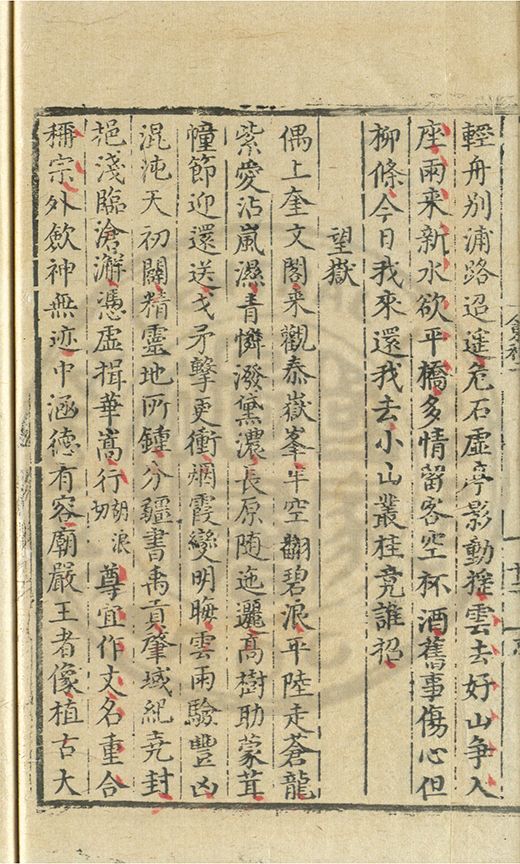 輕舟別浦路迢遙危石虛亭影動搖雲去好山爭入
座雨来新水欲平橋多情留客空杯酒舊事傷心但
柳條今日我來還我去小山叢桂竟誰招
望嶽
偶上奎文閣来觀泰嶽峯半空翻碧浪平陸走蒼龍
紫愛沾嵐濕青憐潑黛濃長原随迤邐高樹助蒙茸
幢節迎還送戈矛擊更衝烟霞變明晦雲雨驗豐凶
混沌天初闢精靈地所鍾分疆書禹貢肇域紀堯封
挹淺臨滄澥憑虛揖華嵩行胡浪切尊宜作丈名重合
稱宗外飲神無迹中涵德有容廟嚴王者像植古大